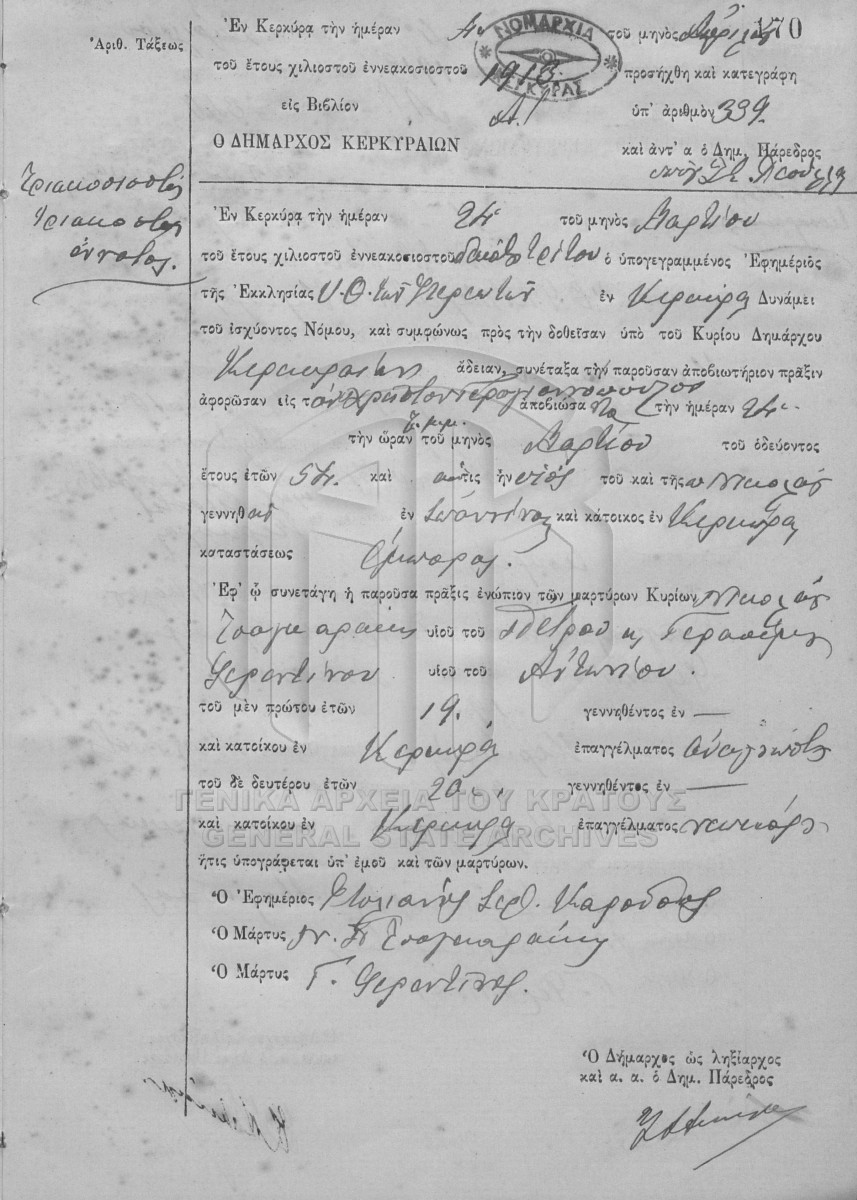 170
Ἀριθ. Τάξεως
Ἐν Κερκύρᾳ τὴν ἡμέραν τοῦ μηνὸς
τοῦ ἔτους χιλιοστοῦ ἐννεακοσιοστοῦ 1913 προσήχθη καὶ κατεγράφη
ΝΟΜΑΡΧΙΑ ΚΕΡΚΥΡΑΣ
εἰς Βιβλίον Α ὑπ' ἀριθμὸν 339
Ο ΔΗΜΑΡΧΟΣ ΚΕΡΚΥΡΑΙΩΝ καὶ ἀντ' α ὁ Δημ. Πάρεδρος
Τριακοσιοστὸς
τριακοστὸς
ἔννατος.
Ἐν Κερκύρᾳ τὴν ἡμέραν 24 τοῦ μηνὸς Μαρτίου
τοῦ ἔτους χιλιοστοῦ ἐννεακοσιοστοῦ δεκάτου τρίτου ὁ ὑπογεγραμμένος Ἐφημέριος
τῆς Ἐκκλησίας Υ.Θ. τῶν ἐν Κερκύρᾳ Δυνάμει
τοῦ ἰσχύοντος Νόμου, καὶ συμφώνως πρὸς τὴν δοθεῖσαν ὑπὸ τοῦ Κυρίου Δημάρχου
Κερκυραίων ἄδειαν, συνέταξα τὴν παροῦσαν ἀποβιωτήριον πρᾶξιν
ἀφορῶσαν εἰς τὸν Χρῆστον ἀποβιώσαντα τὴν ἡμέραν 24
τὴν ὥραν 7 μ.μ. τοῦ μηνὸς Μαρτίου τοῦ ὁδεύοντος
ἔτους ἐτῶν 54 καὶ ὅστις ἦν υἱὸς τοῦ καὶ τῆς Νικολάου
γεννηθεὶς ἐν Ἰωάννινα καὶ κάτοικος ἐν Κερκύρᾳ
καταστάσεως ἔμπορος.
Ἐφ' ᾧ συνετάγη ἡ παροῦσα πρᾶξις ἐνώπιον τῶν μαρτύρων Κυρίων Νικολάου
Τσαγκαράκη υἱοῦ τοῦ Πέτρου κ Γερασίμου
Φεραντίνου υἱοῦ τοῦ Ἀντωνίου.
τοῦ μὲν πρώτου ἐτῶν 19. γεννηθέντος ἐν —
καὶ κατοίκου ἐν Κερκύρᾳ ἐπαγγέλματος
τοῦ δὲ δευτέρου ἐτῶν 20. γεννηθέντος ἐν —
ΓΕΝΙΚΑ ΑΡΧΕΙΑ ΤΟΥ ΚΡΑΤΟΥΣ
καὶ κατοίκου ἐν Κερκύρᾳ ἐπαγγέλματος
GENERAL STATE ARCHIVES
ἥτις ὑπογράφεται ὑπ' ἐμοῦ καὶ τῶν μαρτύρων.
Ὁ Ἐφημέριος Στυλιανὸς Ἱερ. Καρούσος
Ὁ Μάρτυς Ν. Π Τσαγκαράκης
Ὁ Μάρτυς Γ. Φεραντίνος.
Ὁ Δήμαρχος ὡς ληξίαρχος
καὶ α. α. ὁ Δημ. Πάρεδρος